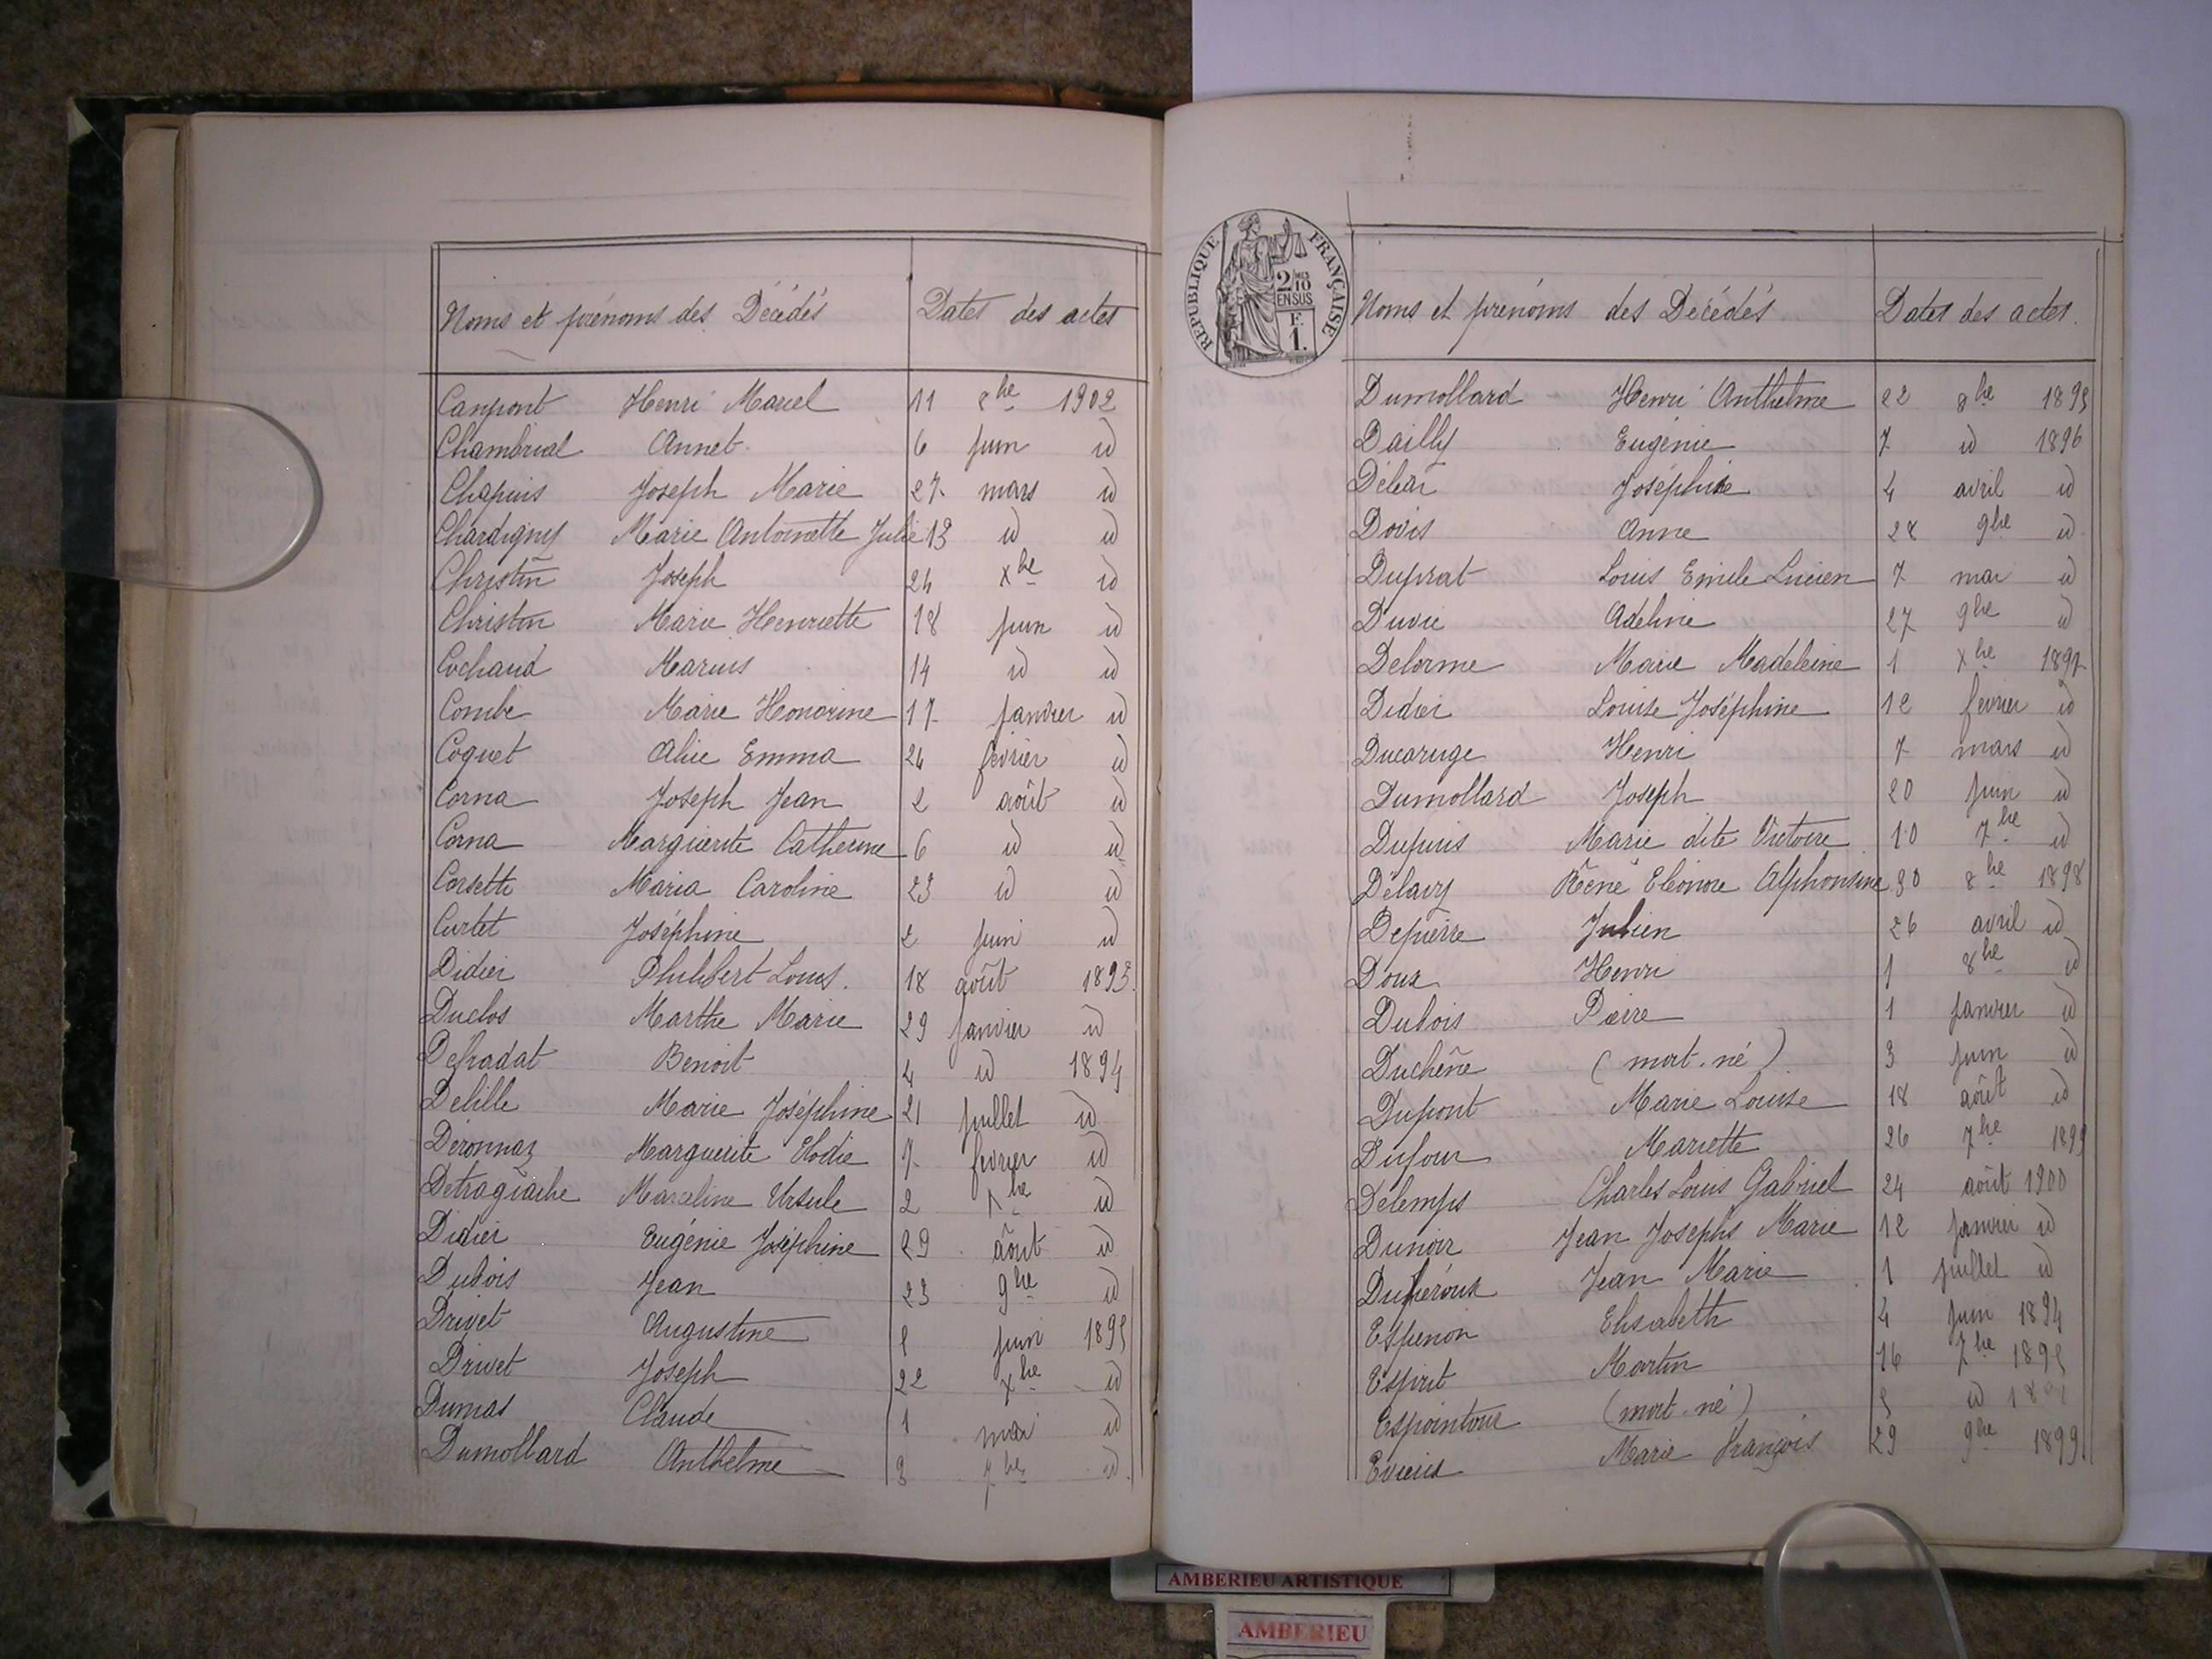 Noms et prénoms des Décédés Dates des actes
Canpont Henri Marcel 11 8bre 1902
Chambrial Annet 6 juin id
Chapuis Joseph Marie 27 mars id
Chardigny Marie Antoinette Julie 13 id id
Christin Joseph 24 Xbre id
Christin Marie Henriette 18 juin id
Cochaud Marius 14 id id
Combe Marie Honorine 17 janvier id
Coquet Alice Emma 24 février id
Corna Joseph Jean 2 août id
Corna Marguerite Catherine 6 id id
Corsetti Maria Caroline 23 id id
Curtet Joséphine 2 juin id
Didier Philibert Louis 18 août 1893
Duclos Marthe Marie 29 janvier id
Defradat Benoit 4 id 1894
Delille Marie Joséphine 21 juillet id
Déronnaz Marguerite Elodie 7 février id
Detragiache Marceline Ursule 2 id
Didier Eugénie Joséphine 29 août id
Dubois Jean 23 9bre id
Drivet Augustine juin 1895
Drivet Joseph 22 Xbre id
Dumas Claude 1 mai id
Dumollard Anthelme 3 7bre id
REPUBLIQUE FRANÇAISE
2/10 MES
EN SUS
F.
1.
Noms et prénoms des Décédés Dates des actes.
Dumollard Henri Anthelme 22 8bre 1895
Dailly Eugénie 7 id 1896
Joséphine 4 avril id
Dovis Anne 28 9bre id
Duprat Louis Emile Lucien 7 mai id
Duvie Adeline 27 9bre id
Delorme Marie Madeleine 1 Xbre 1897
Didier Louise Joséphine 12 février id
Ducaruge Henri 7 mars id
Dumollard Joseph 20 juin id
Dupuis Marie dite Victoire 10 7bre id
Délavy Réné Eléonore Alphonsine 30 8bre 1898
Depierre Julien 26 avril id
Doux Henri 1 8bre id
Dubois Pierre 1 janvier id
Duchêne (mort-né) 3 juin id
Dupont Marie Louise 18 août id
Dufour Mariette 26 7bre 1899
Délemps Charles Louis Gabriel 24 août 1900
Dunoir Jean Josephs Marie 12 janvier id
Jean Marie 1 juillet id
Espenon Elisabeth 4 juin 1894
Espirit Martin 16 7bre 1895
Espointour (mort-né) 5 id
Marie François 29 9bre 1899.
AMBERIEU ARTISTIQUE
AMBERIEU